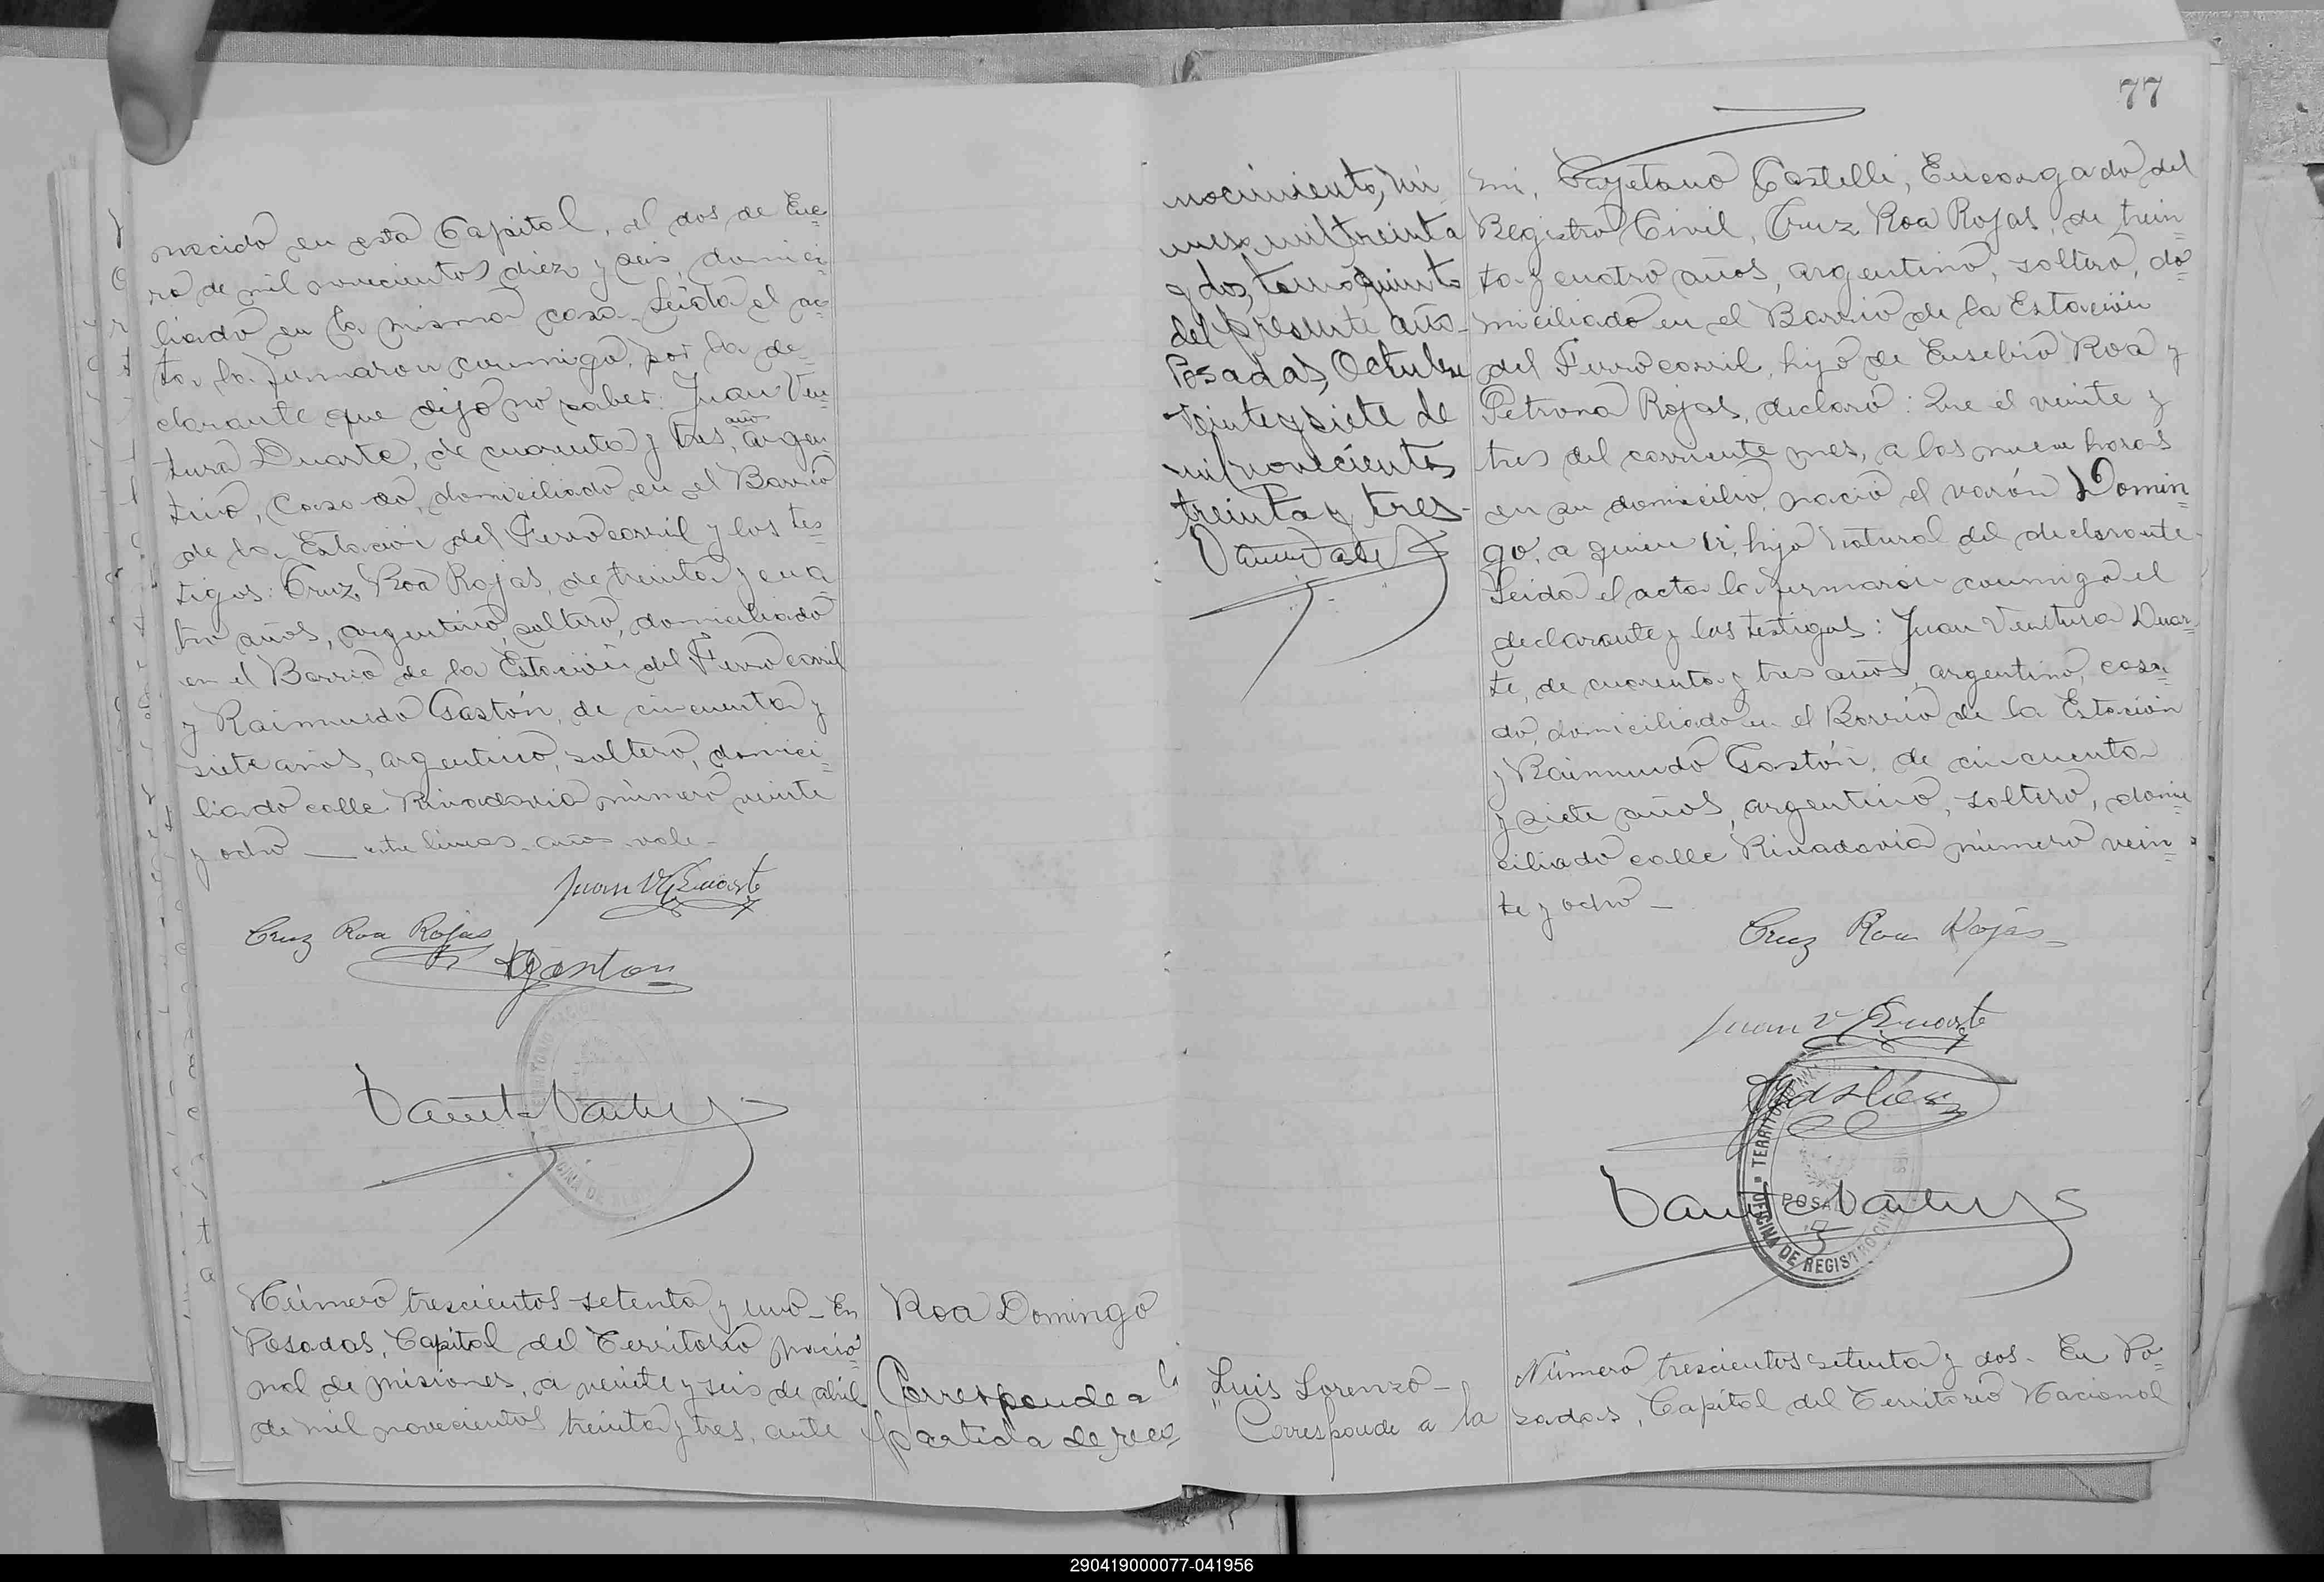 necido en esta Capital, el dos de Ene=
ro de mil novecientos diez y seis, domici=
liado en la misma casa. Leida el ac=
ta, la firmaron conmigo, por la de=
clarante que dijo no saber: Juan Ven=
tura Duarte, de cuarenta y tres, argen=
años
tino, casado, domiciliado en el Barrio
de la Estación del Ferrocarril y los tes=
tigos: Cruz Roa Rojas, de treinta y cua
tro años, argentino, soltero, domiciliado
en el Barrio de la Estación del Ferrocarril
y Raimundo Gastón, de cincuenta y
siete años, argentino, soltero, domici=
liado calle Rivadavia número veinte
y ocho — entre lineas - años - vale -
Juan V. Duarte
Cruz Roa Rojas
RGaston
Número trescientos setenta y uno - En
Posadas, Capital del Territorio nacio=
nal de Misiones, a veinte y seis de abril
de mil novecientos treinta y tres, ante
Roa Domingo
Corresponde a la
partida de reco
77
nocimiento,
mil treinta
y dos, tomo quinto
del presente año -
Posadas, Octubre
veinte y siete de
mil novecientos
treinta y tres -
mi, Cayetano Castelli, Encargado del
Registro Civil, Cruz Roa Rojas, de trein
ta y cuatro años, argentino, soltero, do=
miciliado en el Barrio de la Estación
del Ferrocarril, hijo de Eusebio Roa y
Petrona Rojas, declaró: Que el veinte y
tres del corriente mes, a las nueve horas
en su domicilio, nació el varón Domin=
go, a quien vi, hijo natural del declarante.
Leida el acta la firmaron conmigo el
declarante y los testigos: Juan Ventura Duar=
te, de cuarenta y tres años, argentino, casa=
do, domiciliado en el Barrio de la Estación
y Raimundo Gastón, de cincuenta
y siete años, argentino, soltero, domi=
ciliado calle Rivadavia número vein=
te y ocho -
Cruz Roa Rojas
Juan V Duarte
OFICINA DE REGISTRO CIVIL
Luis Lorenzo -
Corresponde a la
Número trescientos setenta y dos - En Po=
sadas, Capital del Territorio Nacional
290419000077-041956